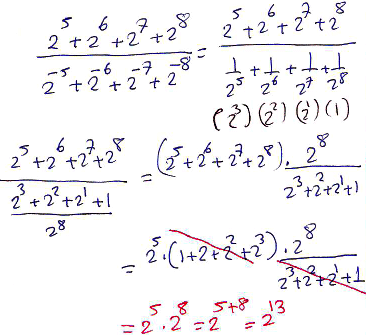 (2^5+2^6+2^7+2^8)/(2^-5+2^-6+2^-7+2^-8) = (2^5+2^6+2^7+2^8)/(1/2^5+1/2^6+1/2^7+1/2^8)
(2^3) (2^2) (2^1) (1)
(2^5+2^6+2^7+2^8)/((2^3+2^2+2^1+1)/2^8) = (2^5+2^6+2^7+2^8) . 2^8/(2^3+2^2+2^1+1)
= 2^5 . (1+2+2^2+2^3) . 2^8/(2^3+2^2+2^1+1)
= 2^5 . 2^8 = 2^5+8 = 2^13